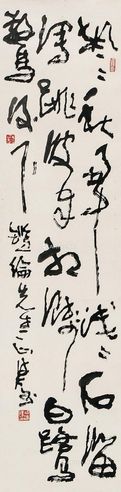 颯〻秋雨中淺〻石溜
瀉跳波自相濺白鷺
驚復下
倫先生正